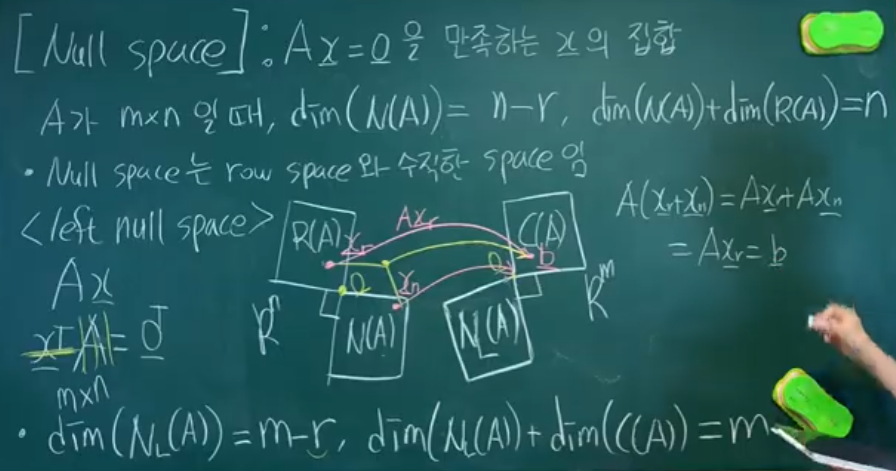 [Null space] : Ax = 0 을 만족하는 x의 집합
A가 m×n 일 때, dim(N(A)) = n-r, dim(N(A)+dim(R(A)) = n
• Null space는 row space와 수직한 space 임
<left null space>
Ax
xᵀA = 0ᵀ
m×n
R(A)
xr
Axr
C(A)
b
0
xn
0
Rⁿ
N(A)
N_L(A)
Rᵐ
A(xr+xn) = Axr+Axn
= Axr = b
• dim(N_L(A)) = m-r, dim(N_L(A)+dim(C(A)) = m